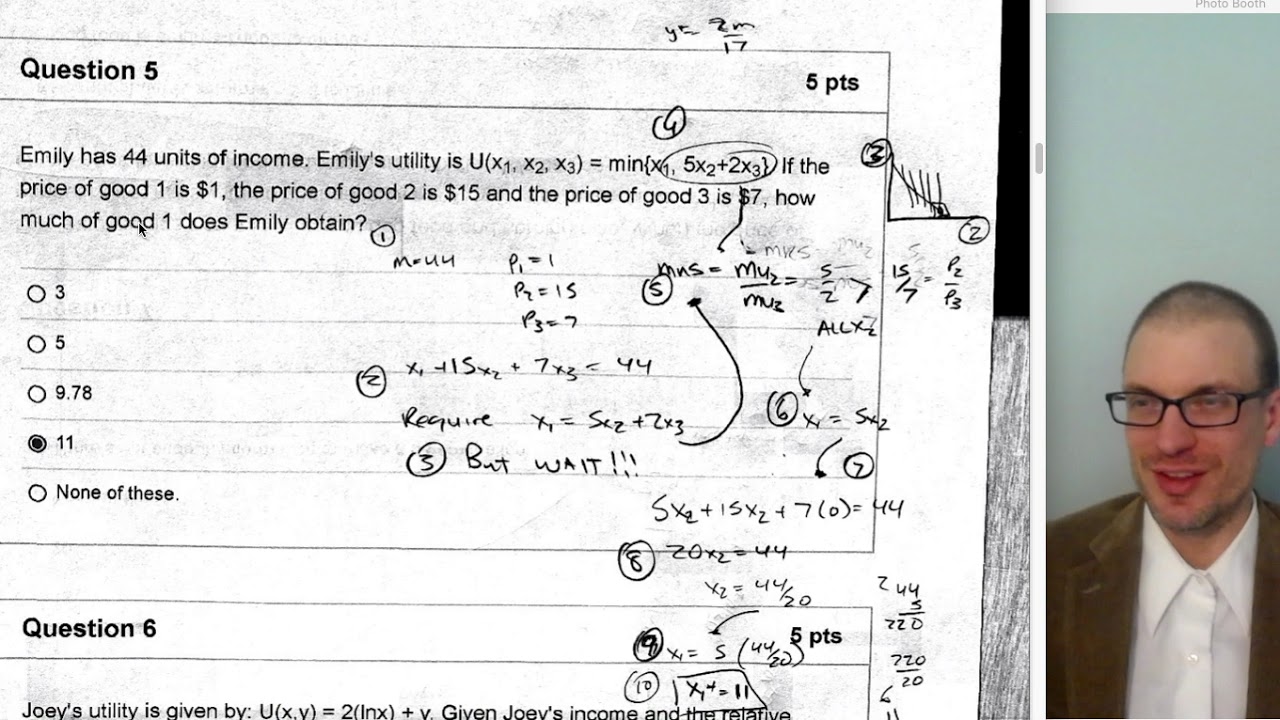 Photo Booth
y= 2m/17
Question 5
5 pts
④
Emily has 44 units of income. Emily's utility is U(x1, x2, x3) = min{x1, 5x2+2x3} If the
price of good 1 is $1, the price of good 2 is $15 and the price of good 3 is $7, how
much of good 1 does Emily obtain?
①
③
②
m=44
P1 = 1
P2 = 15
P3 = 7
⑤
MRS = MU2/MU3 = 5/2
15/7 = P2/P3
ALL X2
3
5
9.78
11
None of these.
② x1 + 15x2 + 7x3 = 44
Require x1 = 5x2 + 2x3
③ But WAIT!!!
⑥ x1 = 5x2
⑦
5x2 + 15x2 + 7(0) = 44
⑧ 20x2 = 44
x2 = 44/20
2 44
5
220
Question 6
5 pts
⑨ x1 = 5 (44/20)
220/20
⑩ x1* = 11
11
Joey's utility is given by: U(x,y) = 2(lnx) + y. Given Joey's income and the relative